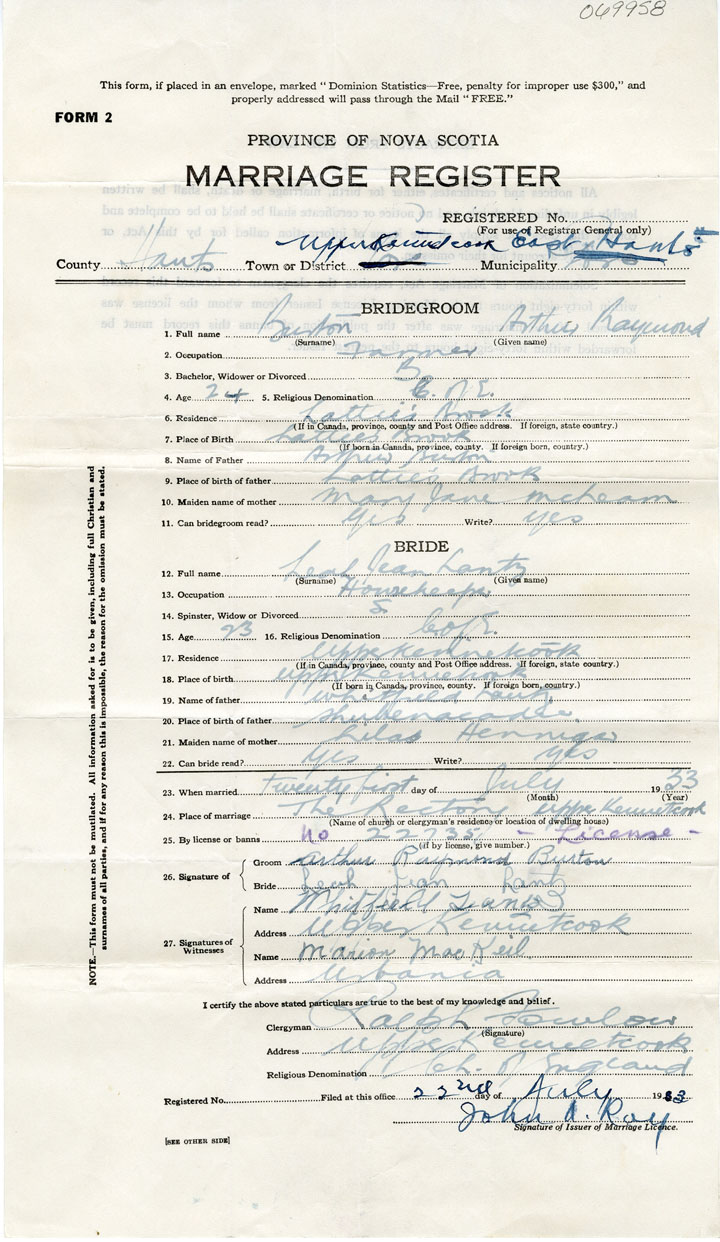 069958
This form, if placed in an envelope, marked "Dominion Statistics—Free, penalty for improper use $300," and
properly addressed will pass through the Mail "FREE."
FORM 2
PROVINCE OF NOVA SCOTIA
MARRIAGE REGISTER
REGISTERED No.
(For use of Registrar General only)
Upper Kennetcook East Hants
County Hants Town or District Municipality
BRIDEGROOM
1. Full name Burton Arthur Raymond
(Surname) (Given name)
2. Occupation Farmer
3. Bachelor, Widower or Divorced B
4. Age 24 5. Religious Denomination C. of E.
6. Residence Lattie's Brook
(If in Canada, province, county and Post Office address. If foreign, state country.)
7. Place of Birth Lattie's Brook
(If born in Canada, province, county. If foreign born, country.)
8. Name of Father Arthur Burton
9. Place of birth of father Lattie's Brook
10. Maiden name of mother Mary Jane
11. Can bridegroom read? Yes Write? Yes
BRIDE
12. Full name Leah Jean Lantz
(Surname) (Given name)
13. Occupation Housekeeper
14. Spinster, Widow or Divorced S
15. Age 23 16. Religious Denomination C of E.
17. Residence Upper Kennetcook
(If in Canada, province, county and Post Office address. If foreign, state country.)
18. Place of birth Upper Kennetcook
(If born in Canada, province, county. If foreign born, country.)
19. Name of father Lantz
20. Place of birth of father Shubenacadie
21. Maiden name of mother Hennigar
22. Can bride read? Yes Write? Yes
23. When married Twenty first day of July 1933
(Month) (Year)
24. Place of marriage The Rectory Upper Kennetcook
(Name of church or clergyman's residence or location of dwelling house)
25. By license or banns No 22735 - License -
(if by license, give number.)
26. Signature of
Groom Arthur Raymond Burton
Bride Leah Jean Lantz
27. Signatures of
Witnesses
Name Whitfield Lantz
Address Upper Kennetcook
Name Marion MacKeil
Address Urbania
I certify the above stated particulars are true to the best of my knowledge and belief.
Clergyman Ralph Fowlow
(Signature)
Address Upper Kennetcook
Religious Denomination Ch. of England
Registered No. Filed at this office 22nd day of July 1933
John A. Roy
Signature of Issuer of Marriage Licence.
[SEE OTHER SIDE]
NOTE.—This form must not be mutilated. All information asked for is to be given, including full Christian and
surnames of all parties, and if for any reason this is impossible, the reason for the omission must be stated.